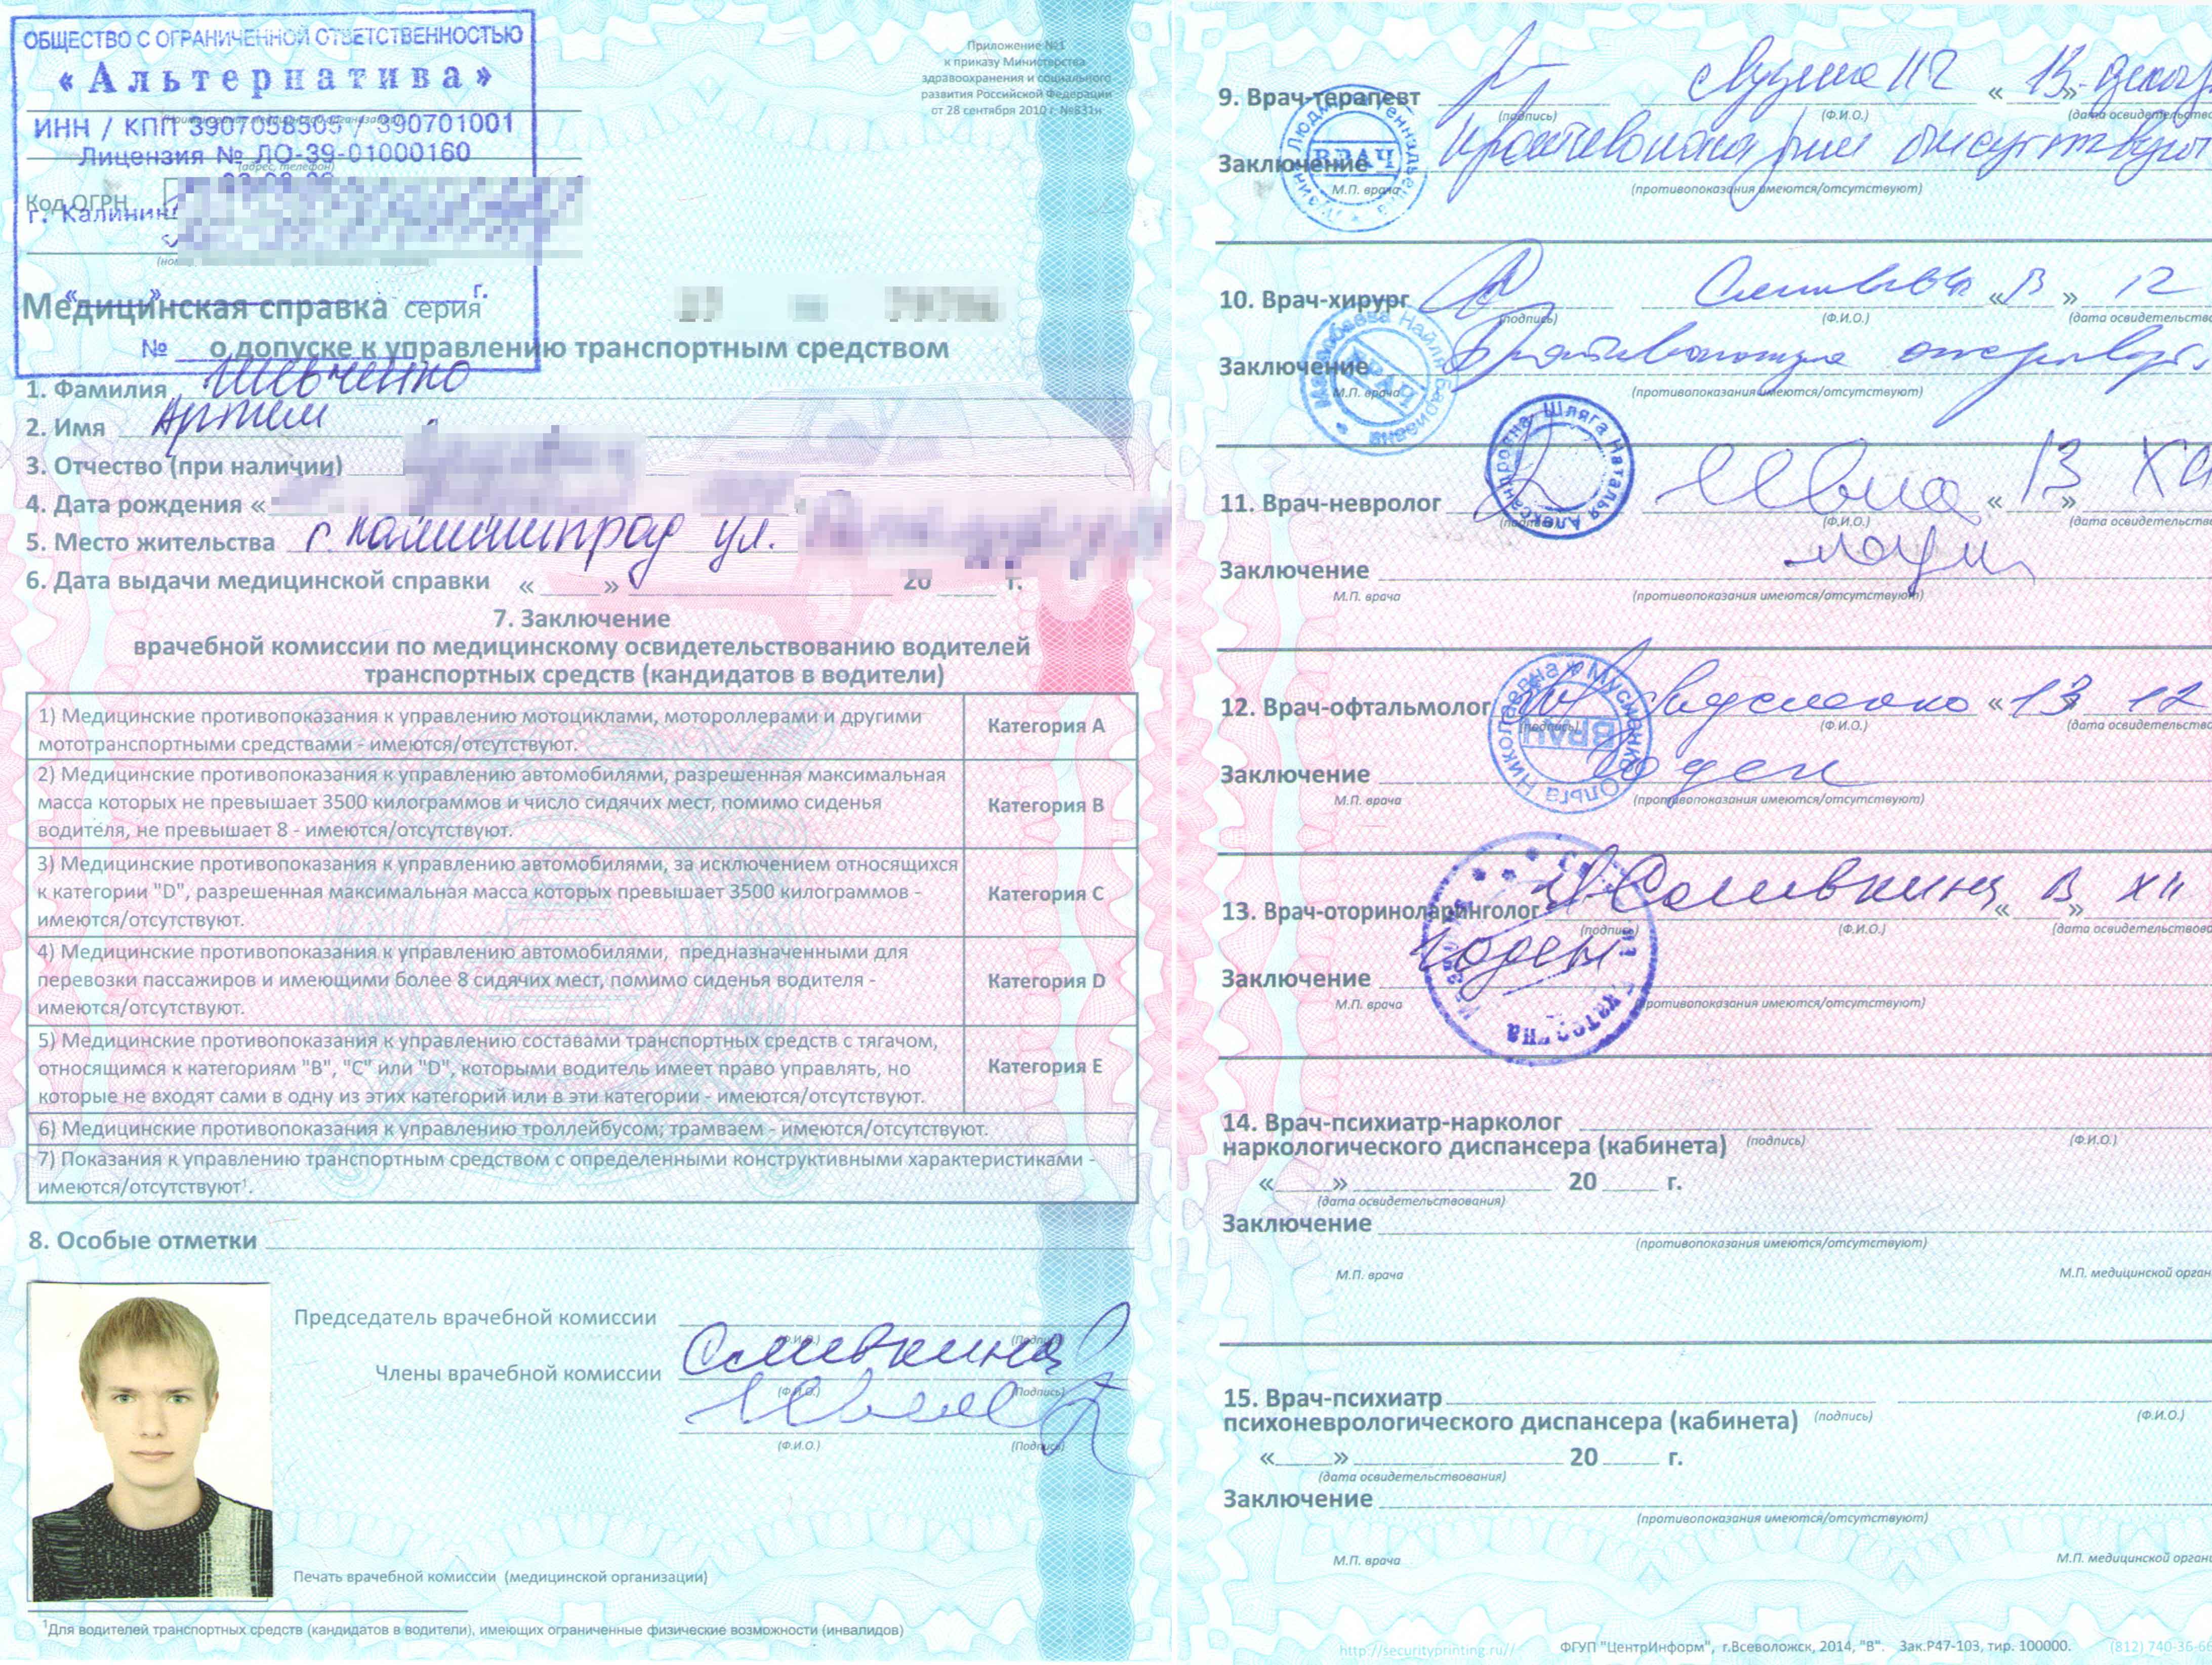 ОБЩЕСТВО С ОГРАНИЧЕННОЙ ОТВЕТСТВЕННОСТЬЮ
«Альтернатива»
ИНН / КПП 3907058505 / 390701001
Лицензия № ЛО-39-01000160
(адрес, телефон)
Код ОГРН
г. Калинин
« » г.
№
Приложение №1
к приказу Министерства
здравоохранения и социального
развития Российской Федерации
от 28 сентября 2010 г. №831н
Медицинская справка серия
о допуске к управлению транспортным средством
1. Фамилия Шевченко
2. Имя Артем
3. Отчество (при наличии)
4. Дата рождения «
5. Место жительства г. Калининград ул.
6. Дата выдачи медицинской справки « » 20 г.
7. Заключение
врачебной комиссии по медицинскому освидетельствованию водителей
транспортных средств (кандидатов в водители)
1) Медицинские противопоказания к управлению мотоциклами, мотороллерами и другими
мототранспортными средствами - имеются/отсутствуют.
Категория A
2) Медицинские противопоказания к управлению автомобилями, разрешенная максимальная
масса которых не превышает 3500 килограммов и число сидячих мест, помимо сиденья
водителя, не превышает 8 - имеются/отсутствуют.
Категория B
3) Медицинские противопоказания к управлению автомобилями, за исключением относящихся
к категории "D", разрешенная максимальная масса которых превышает 3500 килограммов -
имеются/отсутствуют.
Категория C
4) Медицинские противопоказания к управлению автомобилями, предназначенными для
перевозки пассажиров и имеющими более 8 сидячих мест, помимо сиденья водителя -
имеются/отсутствуют.
Категория D
5) Медицинские противопоказания к управлению составами транспортных средств с тягачом,
относящимся к категориям "B", "C" или "D", которыми водитель имеет право управлять, но
которые не входят сами в одну из этих категорий или в эти категории - имеются/отсутствуют.
Категория E
6) Медицинские противопоказания к управлению троллейбусом; трамваем - имеются/отсутствуют.
7) Показания к управлению транспортным средством с определенными конструктивными характеристиками -
имеются/отсутствуют¹.
8. Особые отметки
Председатель врачебной комиссии
(Ф.И.О.) (Подпись)
Члены врачебной комиссии Сливкина
(Ф.И.О.) (Подпись)
(Ф.И.О.) (Подпись)
Печать врачебной комиссии (медицинской организации)
¹Для водителей транспортных средств (кандидатов в водители), имеющих ограниченные физические возможности (инвалидов)
9. Врач-терапевт « 13 »
(подпись) (Ф.И.О.)
ВРАЧ
Заключение противопоказания отсутствуют
М.П. врача (противопоказания имеются/отсутствуют)
10. Врач-хирург « 13 » 12
(подпись) (Ф.И.О.)
ВРАЧ
Заключение
М.П. врача (противопоказания имеются/отсутствуют)
Шляга Наталья Александровна
11. Врач-невролог « 13 »
(подпись) (Ф.И.О.)
Заключение
М.П. врача (противопоказания имеются/отсутствуют)
12. Врач-офтальмолог Мусиенко « 13 » 12
(подпись) (Ф.И.О.)
Мусиенко Ольга Николаевна
ВРАЧ
Заключение годен
М.П. врача (противопоказания имеются/отсутствуют)
13. Врач-оториноларинголог Сливкина « 13 » XII
(подпись) (Ф.И.О.)
Заключение годен
М.П. врача (противопоказания имеются/отсутствуют)
14. Врач-психиатр-нарколог
наркологического диспансера (кабинета) (подпись) (Ф.И.О.)
« » 20 г.
(дата освидетельствования)
Заключение
(противопоказания имеются/отсутствуют)
М.П. врача М.П. медицинской орган
15. Врач-психиатр
психоневрологического диспансера (кабинета) (подпись) (Ф.И.О.)
« » 20 г.
(дата освидетельствования)
Заключение
(противопоказания имеются/отсутствуют)
М.П. врача М.П. медицинской органи
http://securityprinting.ru// ФГУП "ЦентрИнформ", г.Всеволожск, 2014, "В". Зак.Р47-103, тир. 100000. (812) 740-36-6